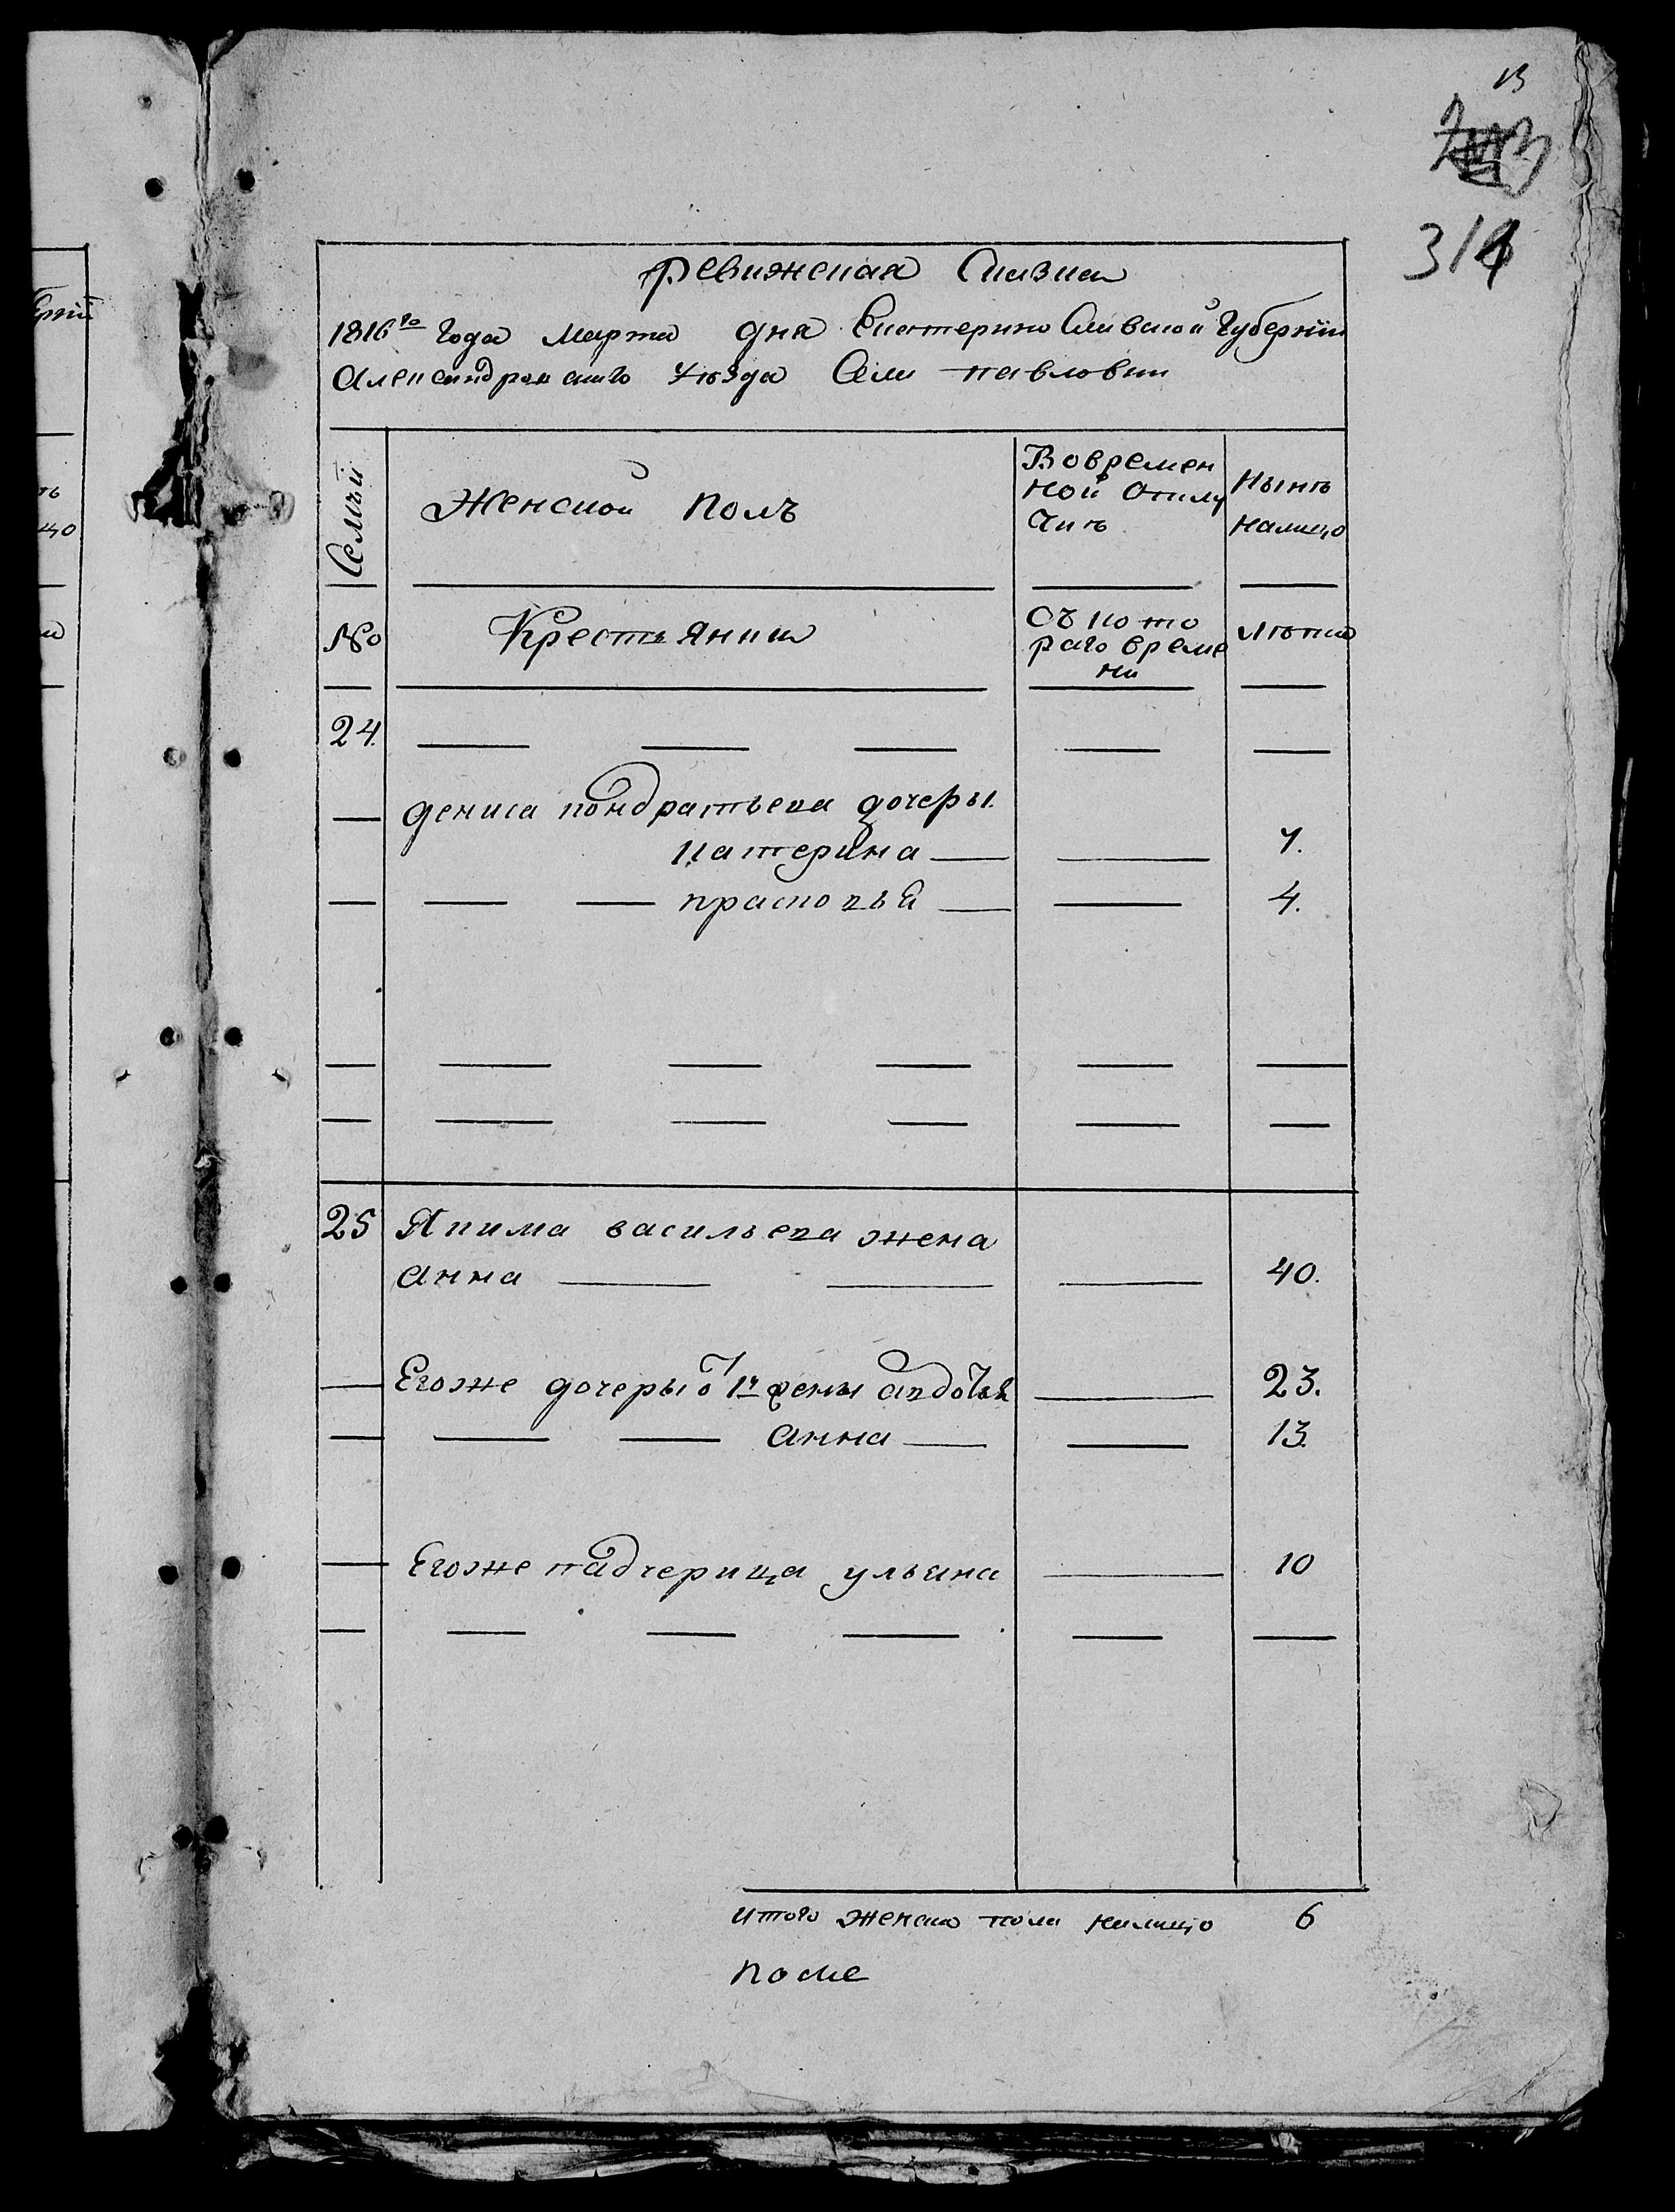 13
314
Ревижская Сказка
1816го Года Марта дня Екатерино Славской Губернїи
Александровского уѣзда Села павловки
Семьи
Женской полъ
Вовремен
ной Отлу
Чкѣ
Нынѣ
налицо
№
Крестьянки
Съ кото
раго време
ни
лѣта
24.
дениса кондратьева дочеры.
катерина
7.
прасковья
4.
25
Якима васильева жена
анна
40.
Егоже дочеры от 1й жены авдотья
23.
анна
13.
Егоже падчерица ульяна
10
итого женска пола налицо 6
після